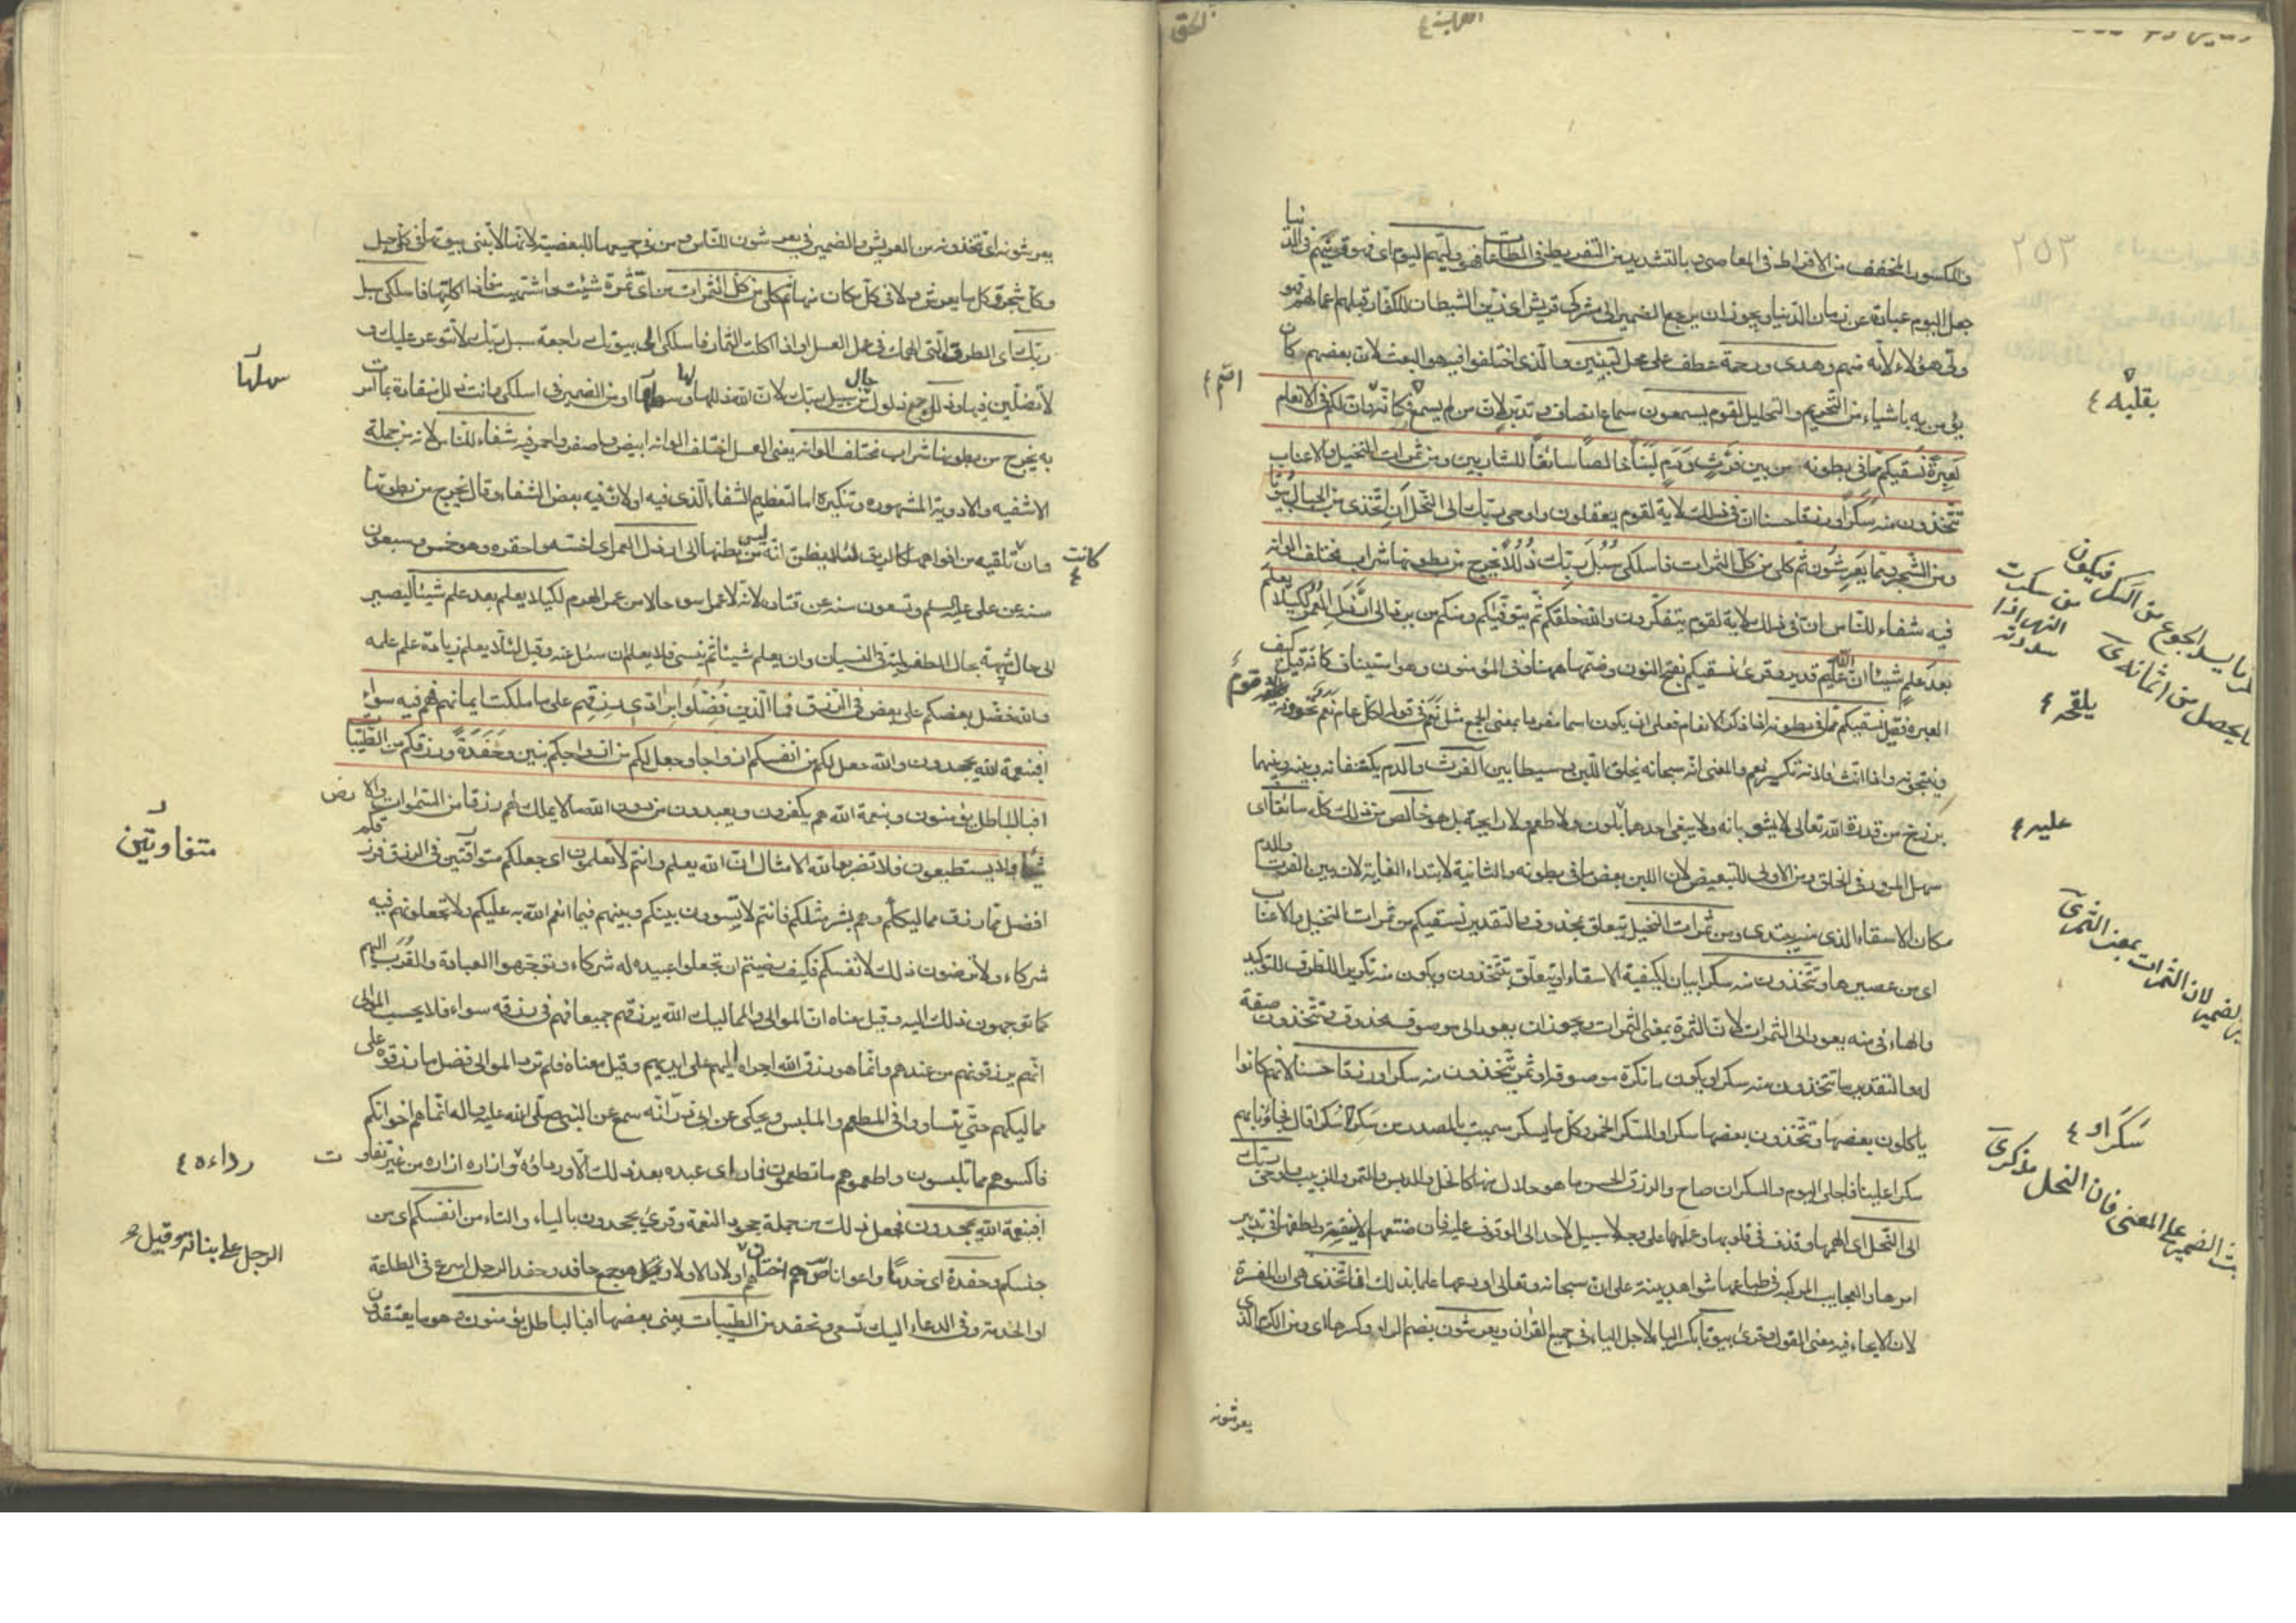 والمكسور المخفف من الافراط في المعاصي وبالتشديد من التفريط في الطاعات فهو وليهم اليوم اى فهو قرينهم في الدنيا
جعل اليوم عبارة عن زمان الدنيا ويجوز ان يرجع الضمير الى مشركى قريش اى زين الشيطان للكفار قبلهم اعمالهم فهو
ولى هؤلاء لانه منهم وهدى ورحمة عطف على محل لتبين والذى اختلفوا فيه هو البعث لان بعضهم كان
يؤمن به باشياء من التحريم والتحليل لقوم يسمعون سماع انصاف وتدبر لان من لم يسمع فكانه وان لكم في الانعام
لعبرة نسقيكم مما في بطونه من بين فرث ودم لبنا خالصا سائغا للشاربين ومن ثمرات النخيل والاعناب
تتخذون منه سكرا ورزقا حسنا ان في ذلك لاية لقوم يعقلون واوحى ربك الى النحل ان اتخذى من الجبال بيوتا
ومن الشجر ومما يعرشون ثم كلى من كل الثمرات فاسلكى سبل ربك ذللا يخرج من بطونها شراب مختلف الوانه
فيه شفاء للناس ان في ذلك لاية لقوم يتفكرون والله خلقكم ثم يتوفيكم ومنكم من يرد الى ارذل العمر لكيلا يعلم
بعد علم شيئا ان الله عليم قدير وقرئ نسقيكم بفتح النون وضمها ههنا وفي المؤمنون وهو استيناف كانه قيل كيف
العبرة فقيل نسقيكم مما في بطونه اذا ذكر الانعام فعلى ان يكون اسما مفردا بمعنى الجمع مثل نعم في قوله اكل عام نعم تحوونه يلقحه قوم
وينتجونه واذا انث فلانه تكسير نعم والمعنى انه سبحانه يخلق اللبن وسيطا بين الفرث والدم يكتنفانه وبينه وبينهما
برزخ من قدرة الله تعالى لا يشوبانه ولا يبغى احدهما بلون ولا طعم ولا رايحة بل هو خالص من ذلك كله سائغا اى
سهل المرور في الحلق ومن الاولى للتبعيض لان اللبن بعض ما في بطونه والثانية لابتداء الغاية لان بين الفرث والدم
مكان الاسقاء الذى منه يبتدى ومن ثمرات النخيل يتعلق بمحذوف والتقدير نسقيكم من ثمرات النخيل والاعناب
اى من عصيرها وتتخذون منه سكرا بيان لكيفية الاسقاء او يتعلق بتتخذون ويكون منه تكرير الظرف للتوكيد
والهاء في منه يعود الى الثمرات لان الثمرة بمعنى الثمرات ويجوز ان يعود الى موصوف محذوف وتتخذون صفة
له والتقدير ما تتخذون منه سكرا ويكون ما نكرة موصوفة او ثمر تتخذون منه سكرا ورزقا حسنا لانهم كانوا
ياكلون بعضها وتتخذون بعضها سكرا والسكر الخمر وكل ما يسكر سميت بالمصدر من سكر سكرا قال فجاؤنا بهم
سكر علينا فاجلى اليوم والسكران صاح والرزق الحسن ما هو حلال منها كالخل والدبس والتمر والزبيب واوحى ربك
الى النحل اى الهمها وقذف في قلوبها وعلمها على وجه لا سبيل لاحد الى الوقوف عليه فان صنعتها الانيقة ولطفها في تدبير
امرها والعجايب المركبة في طباعها شواهد بينة على ان سبحانه وتعالى اودعها علما بذلك ان اتخذى هى ان المفسرة
لان الايحاء فيه معنى القول وقرئ بيوتا بكسر الباء لاجل الياء في جميع القران ويعرشون بضم الراء وكسرها اى ومن الكرم الذى
يعرشونه
٢٥٣
اثم ٤
بقلبه ٤
يلقحه ٤
عليه ٤
سكرا و ٤
يعرشونه اى تتخذونه من العريش والضمير في يعرشون للناس ومن في جميعها للبعضية لانها لا تبنى بيوتها في كل جبل
وكل شجر وكل ما يعرش ولا في كل مكان منها ثم كلى من كل الثمرات من اى ثمرة شئت واشتهيت فاذا اكلتها فاسلكى سبل
ربك اى الطرق التى الهمك في عمل العسل او اذا اكلت الثمار فاسلكى الى بيوتك راجعة سبل ربك لا تتوعر عليك و
لا تضلين فيها وذللا جمع ذلول حال من سبل ربك لان الله ذللها لها وسهلها او من الضمير في اسلكى وانت ذلل منقادة بما امرت
به يخرج من بطونها شراب مختلف الوانه يعنى العسل اختلف الوانه ابيض واصفر واحمر فيه شفاء للناس لانه من جملة
الاشفيه والادوية المشهورة وتنكيره اما لتعظيم الشفاء الذى فيه او لان فيه بعض الشفاء وقال يخرج من بطونها
وان كانت تلقيه من افواهها كالريق لئلا يظن انه ليس من بطنها الى ارذل العمر اى اخسه واحقره وهو خمس وسبعون
سنة عن على عليه السلم وتسعون سنة عن قتادة لانه لا عمر اسوء حالا من عمر الهرم لكيلا يعلم بعد علم شيئا ليصير
الى حال شبيهة بحال الطفولية في النسيان وان يعلم شيئا ثم ينسى فلا يعلم ان سئل عنه وقيل لئلا يعلم زيادة علم على علمه
والله فضل بعضكم على بعض في الرزق فما الذين فضلوا برادى رزقهم على ما ملكت ايمانهم فهم فيه سواء
افبنعمة الله يجحدون والله جعل لكم من انفسكم ازواجا وجعل لكم من ازواجكم بنين وحفدة ورزقكم من الطيبات
افبالباطل يؤمنون وبنعمة الله هم يكفرون ويعبدون من دون الله ما لا يملك لهم رزقا من السموات والارض
شيئا ولا يستطيعون فلا تضربوا لله الامثال ان الله يعلم وانتم لا تعلمون اى جعلكم متفاوتين في الرزق فرزقكم
افضل مما رزق مماليككم وهم بشر مثلكم فانتم لا تسوون بينكم وبينهم فيما انعم الله به عليكم ولا تجعلونهم فيه
شركاء ولا ترضون ذلك لانفسكم فكيف رضيتم ان تجعلوا عبيده له شركاء وتوجهوا العبادة والقرب اليهم
كما توجهون ذلك اليه وقيل معناه ان الموالى والمماليك الله يرزقهم جميعا فهم في رزقه سواء فلا يحسب الموالى
انهم يرزقونهم من عندهم وانما هو رزق الله اجراه اليهم على ايديهم وقيل معناه فلم ترد الموالى فضل ما رزقوه على
مماليكهم حتى تتساووا في المطعم والملبس ويحكى عن ابى ذر انه سمع عن النبى صلى الله عليه واله انما هم اخوانكم
فاكسوهم مما تلبسون واطعموهم ما تطعمون فما راى عبده بعد ذلك الا ورداؤه رداءه وازاره ازاره من غير تفاوت
افبنعمة الله يجحدون فجعل ذلك من جملة جحود النعمة وقرئ يجحدون بالياء والتاء من انفسكم اى من
جنسكم وحفدة اى خدما واعوانا وقيل هم اختان وقيل هم اولاد الاولاد وهو جمع حافد وحفد الرجل اسرع في الطاعة
او الخدمة وفي الدعاء اليك نسعى ونحفد من الطيبات يعنى بعضها افبالباطل يؤمنون وهو ما يعتقدون
سهلها
كانت ٤
متفاوتين
رداءه ٤
الرجل على بناته وقيل